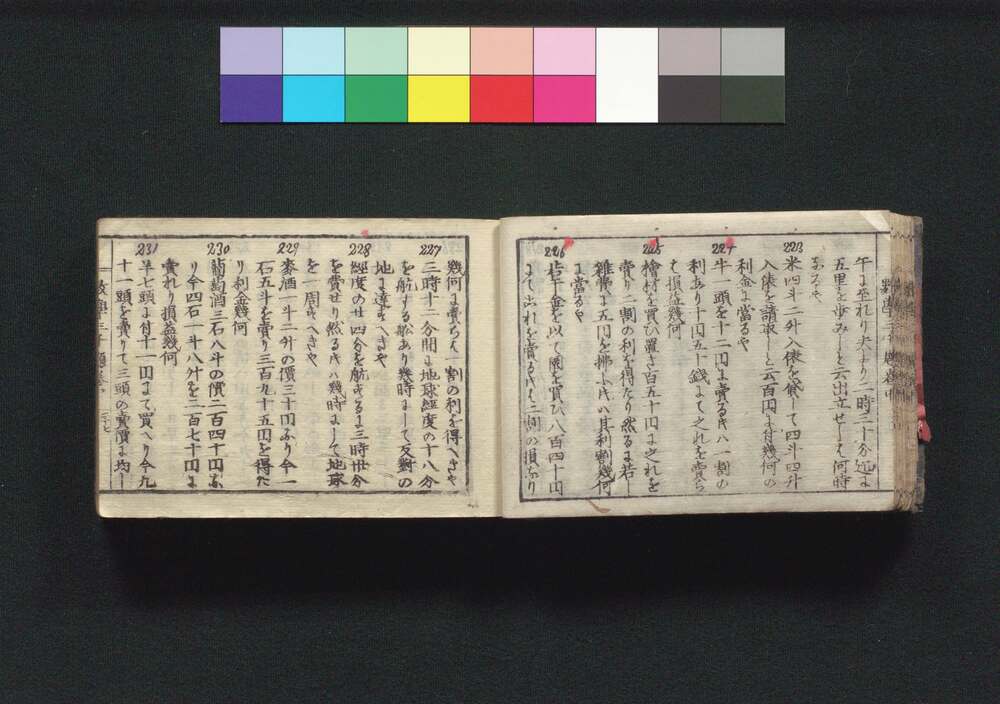 午に至れり夫より二時二十分迠に
五里を歩みしと云出立せしは何時
なるや
223
米四斗二升入俵を貸して四斗四升
入俵を請取しと云百円に付幾何の
利金に當るや
224
牛一頭を十二円に賣る時は一割の
利あり十円五十錢にて之れを賣ら
ば損益幾何
225
檜材を買ひ置き百五十円に之れを
賣り二割の利を得たり然るに若し
雜費に五円を拂ふ時は其利割幾何
に當るや
226
若干金を以て園を買ひ八百四十円
にて之れを賣る時は二割の損なり
幾何に賣らば一割の利を得へきや
227
三時十二分間に地球經度の十八分
を航する舩あり幾時にして反對の
地に達すへきや
228
經度の廿四分を航するに三時卅分
を費せり然る時は幾時にして地球
を一周すへきや
229
麥酒一斗二升の價三十円なり今一
石五斗を賣り三百九十五円を得た
り利金幾何
230
葡萄酒三石八斗の價二百四十円な
り今四石一斗八升を二百七十円に
賣れり損益幾何
231
羊七頭に付十一円にて買へり今九
十一頭を賣りて三頭の賣價に均し